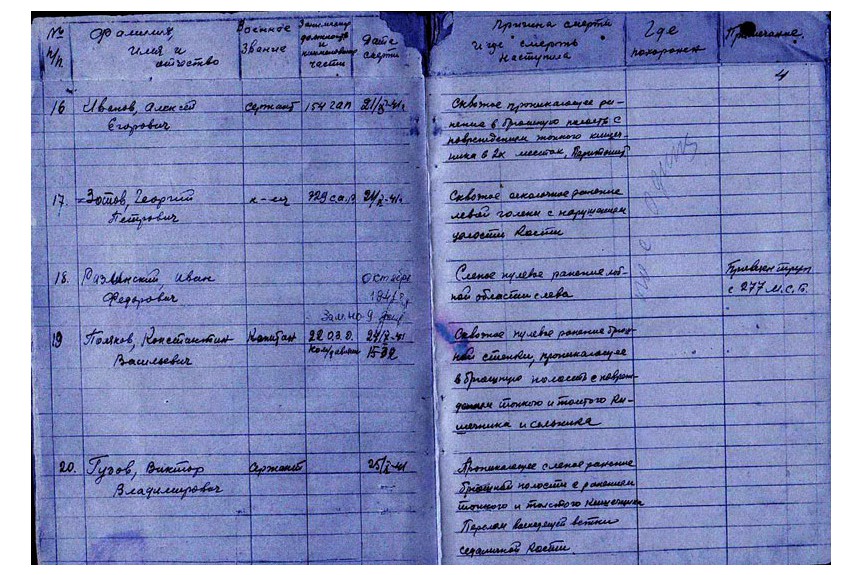 № п/п
Фамилия, имя и отчество
Военное звание
Занимаемая должность и наименование части
Дата смерти
Причина смерти и где смерть наступила
Где похоронен
Примечание.
4
16 Иванов, Алексей Егорович
сержант
154 гап
21/X-41г
Сквозное проникающее ра-
нение в брюшную полость с
повреждением тонкого кишеч-
ника в 2х местах. Перитонит
17. Зотов, Георгий Петрович
к-ец
729 с.п.
24/X-41г
Сквозное осколочное ранение
левой голени с нарушением
целости кости
18. Иван Федорович
октябре 1941 г.
Слепое пулевое ранение лоб-
ной области слева
Привезен
с 277 М.С.Б.
19 Поляков, Константин Васильевич
Капитан
22
24/X-41
Сквозное пулевое ранение брюш-
ной стенки, проникающее
в брюшную полость с повреж-
дением тонкого и толстого ки-
шечника и сальника
20. Гузов, Виктор Владимирович
Сержант
25/X-41
Проникающее слепое ранение
брюшной полости с ранением
тонкого и толстого кишечника
Перелом восходящей ветки
седалищной кости.